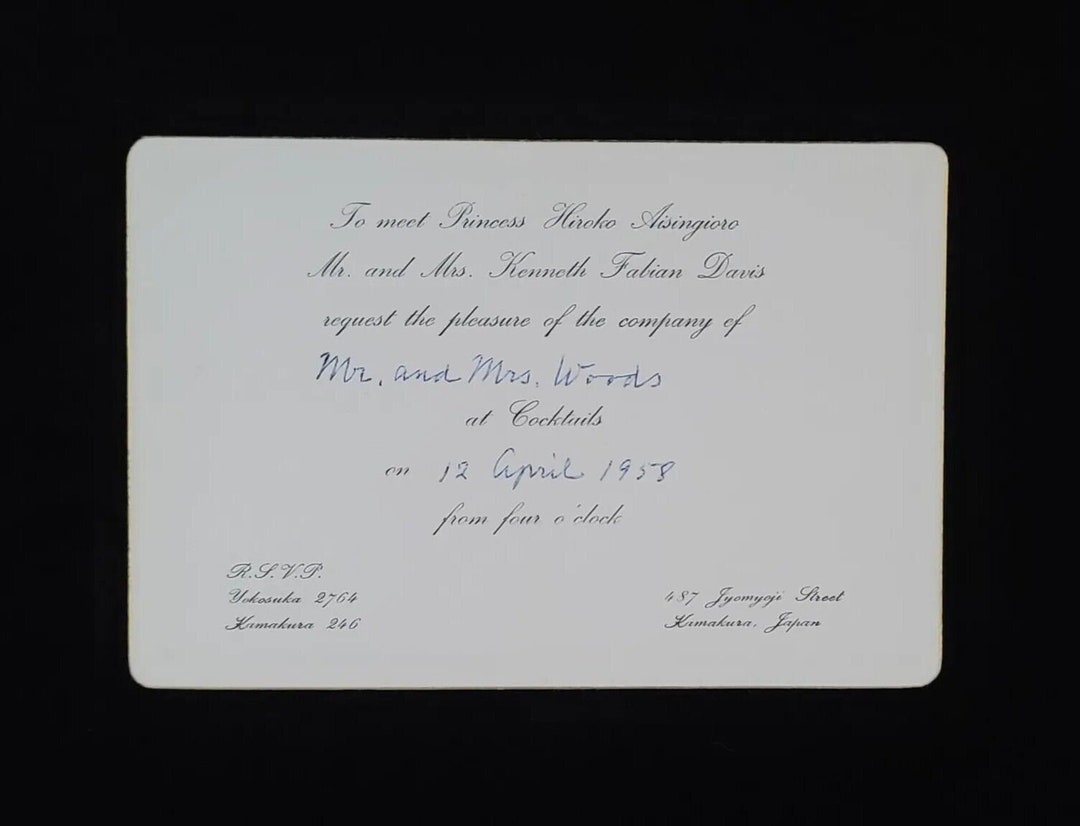 To meet Princess Hiroko Aisingioro
Mr. and Mrs. Kenneth Fabian Davis
request the pleasure of the company of
Mr. and Mrs. Woods
at Cocktails
on 12 April 1958
from four o'clock
R.S.V.P.
Yokosuka 2764
Kamakura 246
487 Jyomyoji Street
Kamakura, Japan